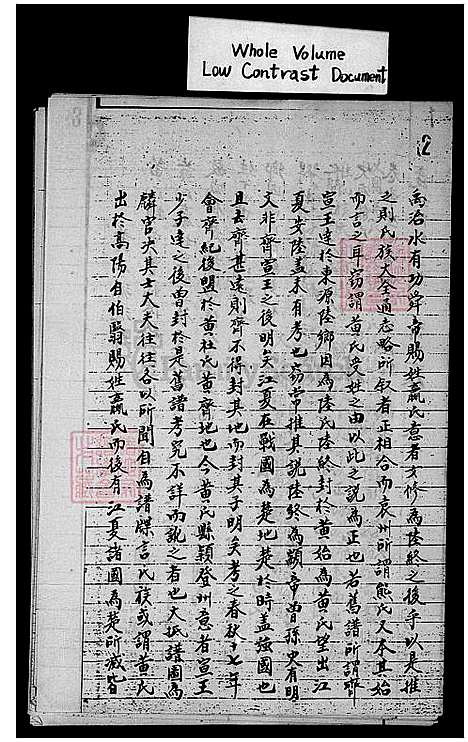 Whole Volume
Low Contrast Document
2
禹治水有功舜帝賜姓嬴氏意者女修為陸終之後乎以是推
之則氏族大全通志略所叙者正相合而袁州所謂熊氏又本其始
而言之耳竊謂黄氏受姓之由以此之說為正也若舊譜所謂齊
宣王達於東源陸鄉因為陸氏陸終封於黄始為黄氏望出江
夏安陸蓋未有考也竊嘗推其說陸終為顓帝曾孫史有明
文非齊宣王之後明矣江夏在戰國為楚地楚於時蓋強國也
且去齊甚遠則齊不得封其地而封其子明矣考之春秋十七年
會齊紀後盟於黄杜氏黄齊地也今黄氏縣穎登州意者宣王
少子達之後曾封於是舊譜考究不詳而說之者也大抵譜圖為
麟官失其士大夫往往各以所聞自為譜牒言氏族或謂黄氏
出於高陽自伯翳賜姓嬴氏而後有江夏諸國為楚所滅皆